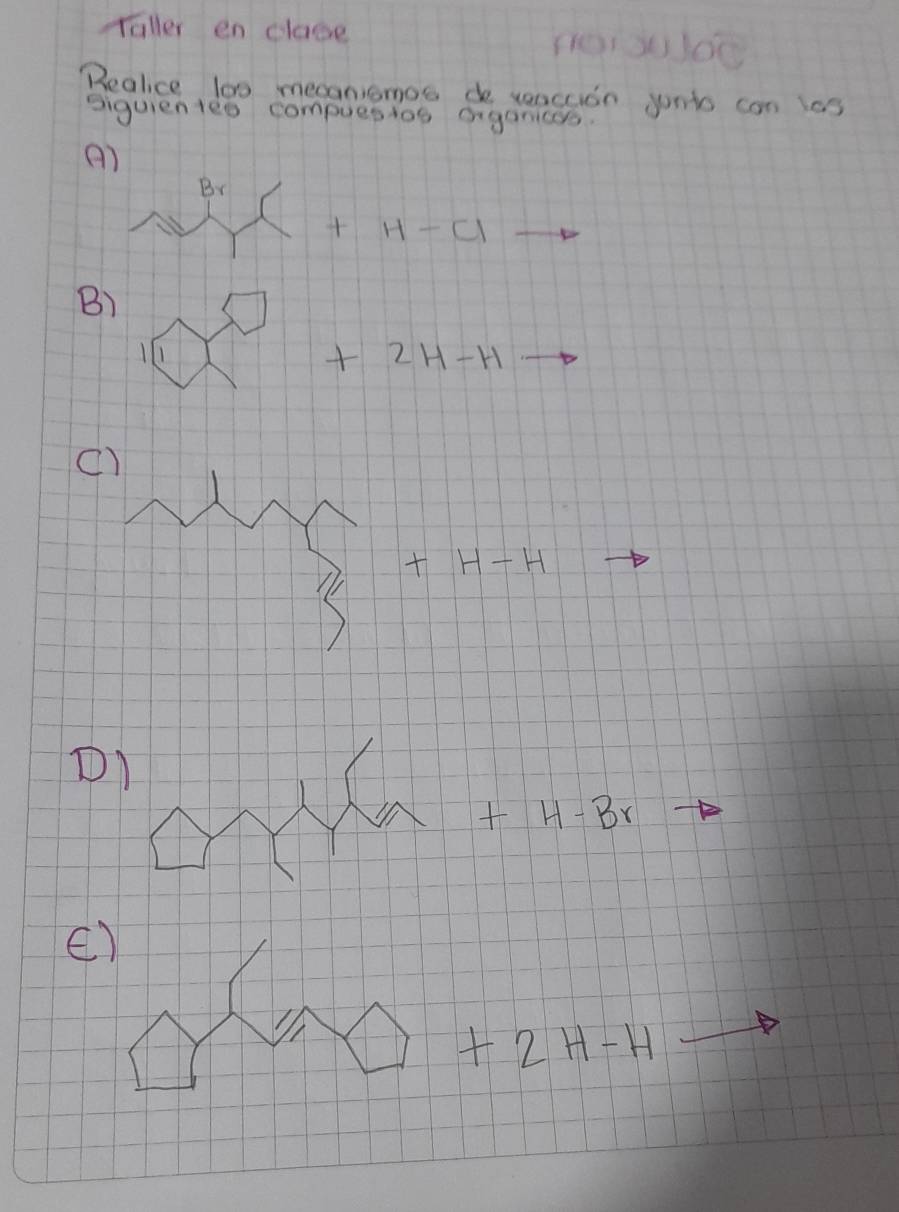 Taller en clase
Realice los mecanismos de reacción junto con los
siguientes compuestos organicos.
A)
Br
+ H - Cl →
B)
+ 2 H - H →
C)
+ H - H →
D)
+ H - Br →
E)
+ 2 H - H →